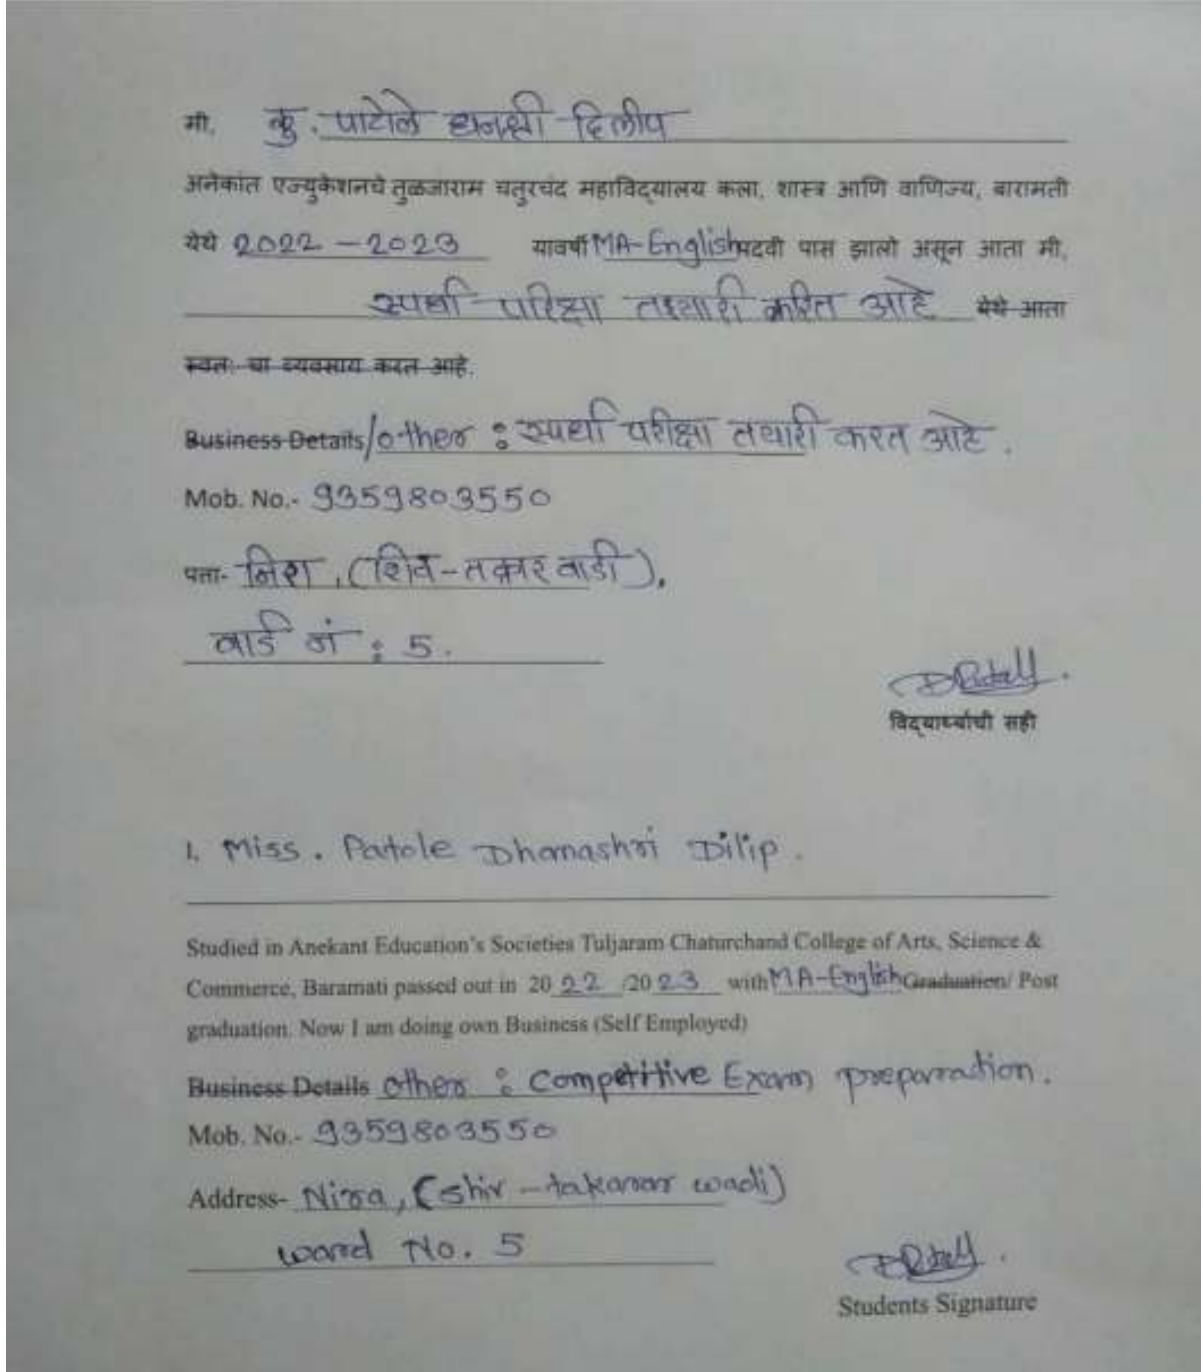 मी, कु. पाटोले धनश्री दिलीप
अनेकांत एज्युकेशनचे तुळजाराम चतुरचंद महाविद्यालय कला, शास्त्र आणि वाणिज्य, बारामती
येथे 2022 - 2023 यावर्षी MA-English पदवी पास झालो असून आता मी,
स्पर्धा परिक्षा तयारी करित आहे येथे आता
स्वतः चा व्यवसाय करत आहे.
Business Details/other : स्पर्धा परीक्षा तयारी करत आहे.
Mob. No.- 9359803550
पत्ता- निरा, (शिव-तक्रार वाडी),
वार्ड नं : 5.
विद्यार्थ्याची सही
I. Miss. Patole Dhanashri Dilip.
Studied in Anekant Education's Societies Tuljaram Chaturchand College of Arts, Science &
Commerce, Baramati passed out in 2022 /2023 with MA-English Graduation/ Post
graduation. Now I am doing own Business (Self Employed)
Business Details other : Competitive Exam preparation.
Mob. No.- 9359803550
Address- Nira, (shiv-takarar wadi)
ward No. 5
Students Signature